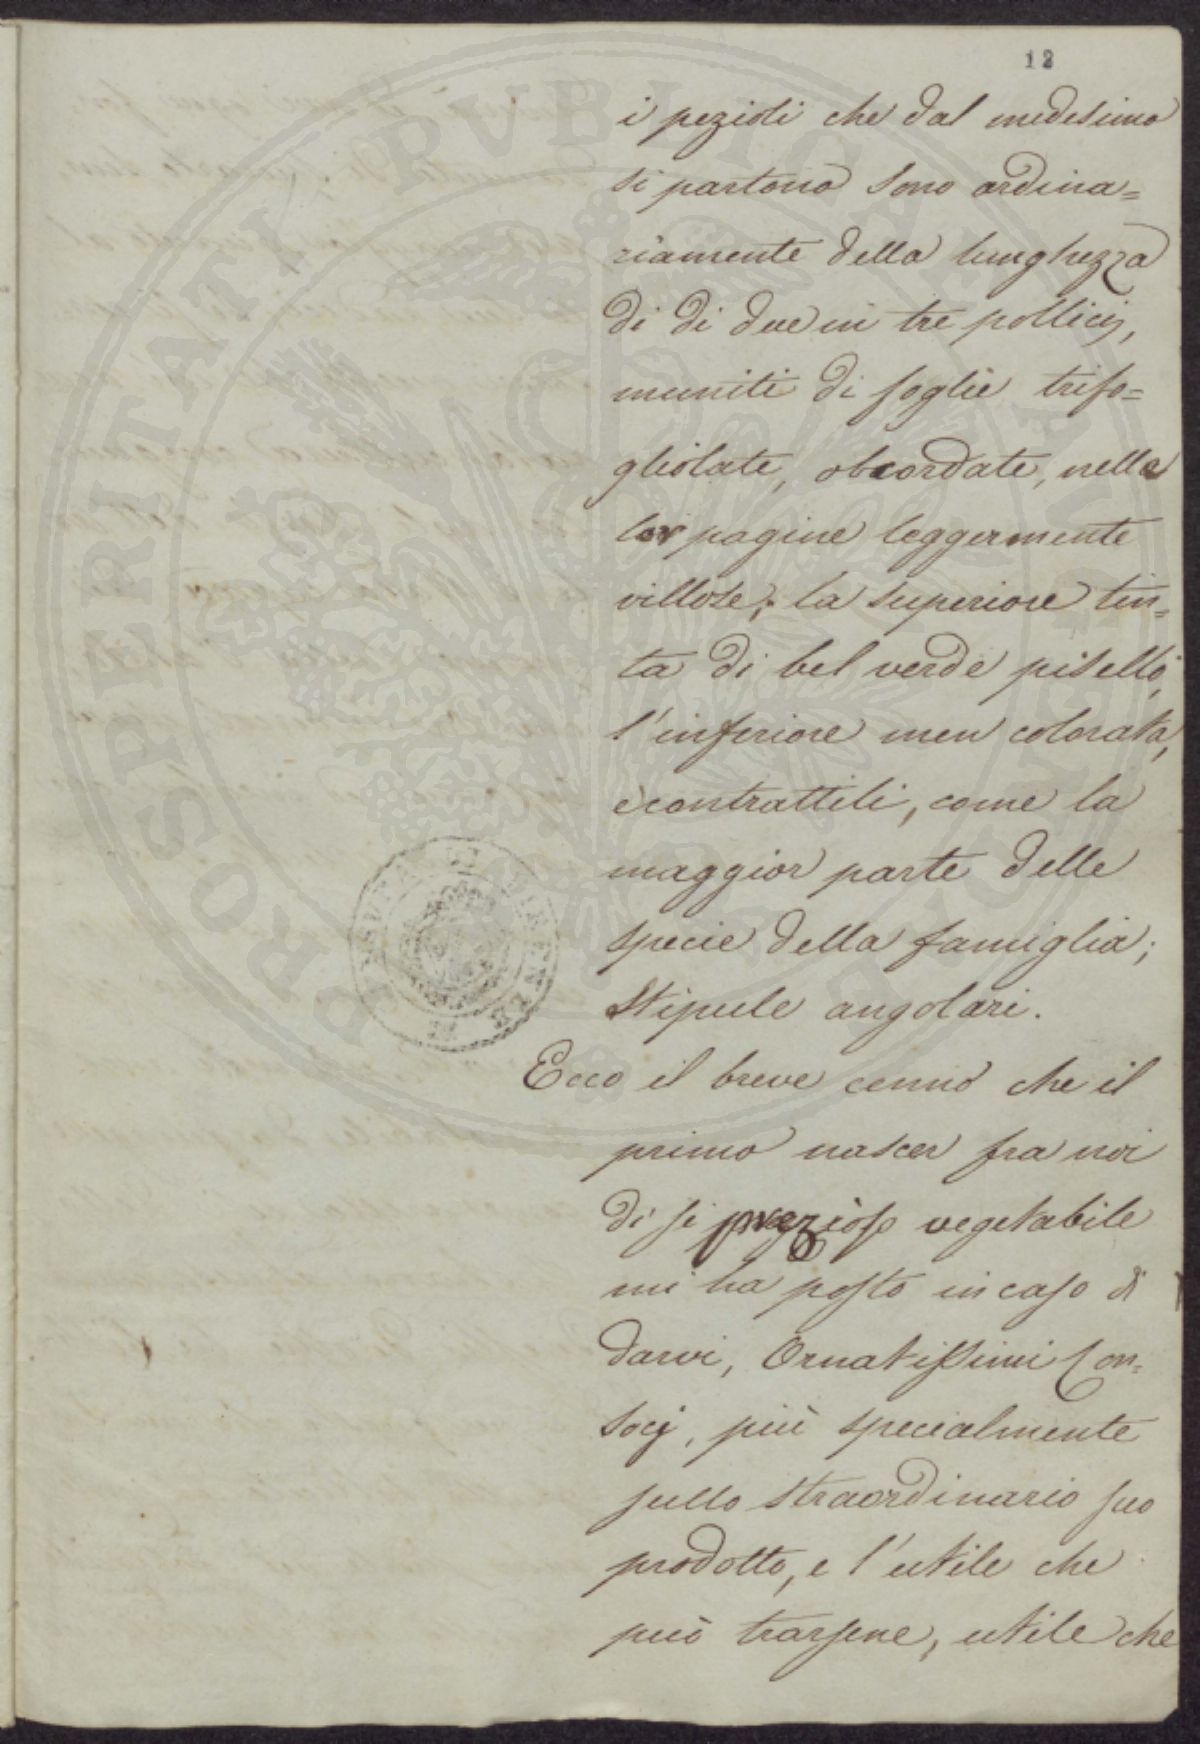 12
i pezioli che dal medesimo
si partono sono ordina=
riamente della lunghezza
di di due in tre pollicj,
muniti di foglie trifo=
gliolate, obcordate, nelle
lor pagine leggermente
villose; la superiore tin=
ta di bel verde pisello,
l'inferiore men colorata,
e contrattili, come la
maggior parte delle
specie della famiglia;
Stipule angolari.
Ecco il breve cenno che il
primo nascer fra noi
di si prezioso vegetabile
mi ha posto in caso di
darvi, Ornatissimi Con=
socj, più specialmente
sullo straordinario suo
prodotto, e l'utile che
può trarsene, utile che
PROSPERITATI PVBLICAE AVGENDAE